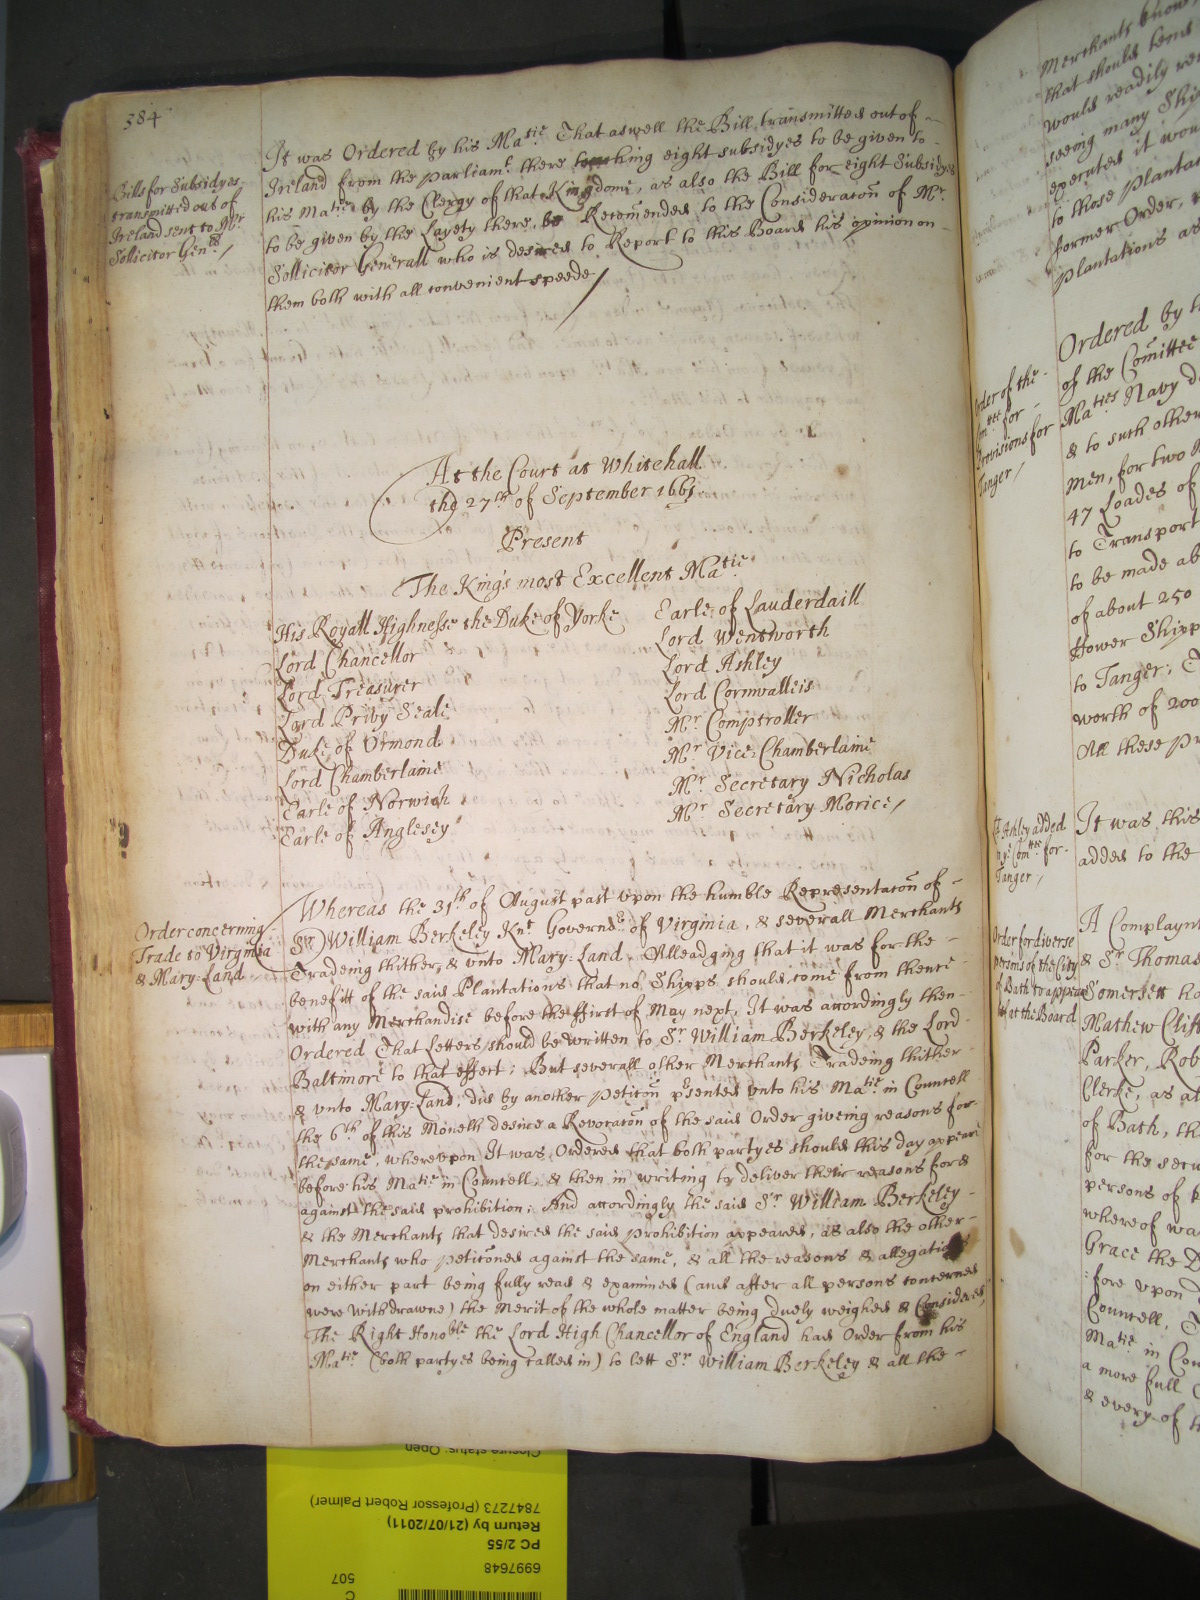 384
Bills for Subsidyes
transmitted out of
Ireland sent to Mr
Sollicitor Genll /
It was Ordered by his Matie That aswell the Bill transmitted out of
Ireland from the Parliamt there touching eight subsidyes to be given to
his Matie by the Clergy of that Kingdome, as also the Bill for eight Subsidyes
to be given by the Layety there, be Recomended to the Consideracon of Mr
Sollicitor Generall who is desired to Report to this Board his opinion on
them both with all convenient speede /
At the Court at Whitehall
the 27th of September 1661
Present
The Kings most Excellent Matie
His Royall Highnesse the Duke of Yorke
Lord Chancellor
Lord Treasurer
Lord Privy Seale
Duke of Ormond
Lord Chamberlaine
Earle of Norwich
Earle of Anglesey
Earle of Lauderdaill
Lord Wentworth
Lord Ashley
Lord Cornwalleis
Mr Comptroller
Mr Vice Chamberlaine
Mr Secretary Nicholas
Mr Secretary Morice /
Order concerning
Trade to Virginia
& Mary-Land
Whereas the 31th of August past vpon the humble Representacon of
Sr William Berkeley Knt Governor of Virginia, & severall Merchants
Tradeing thither, & vnto Mary-Land, Alleadging that it was for the
benefitt of the said Plantations that no Shipps should come from thence
with any Merchandise before the ffirst of May next, It was accordingly then
Ordered That Letters should be written to Sr William Berkeley, & the Lord
Baltimore to that effect; But severall other Merchants Tradeing thither
& vnto Mary-Land, did by another Peticon psented vnto his Matie in Councell
the 6th of this Moneth desire a Revocacon of the said Order giveing reasons for
the same, wherevpon It was Ordered that both partyes should this day appeare
before his Matie in Councell, & then in writing to deliver their reasons for &
against the said prohibition; And accordingly the said Sr William Berkeley
& the Merchants that desired the said prohibition appeared, as also the other
Merchants who peticoned against the same, & all the reasons & allegations
on either part being fully read & examined (and after all persons concerned
were withdrawne) the Merit of the whole matter being duely weighed & Considered,
The Right Honoble the Lord High Chancellor of England had Order from his
Matie (both partyes being called in) to lett Sr William Berkeley & all the
Merchants know,
that should
would readily
seeing many Ship
executed it wou
to those Planta
former Order,
Plantations as
Order of the
Comttee for
Provisions for
Tanger /
Ordered by
of the Comittee
Maties Navy
& to such other
men, for two
47 Loades of
to Transport
to be made ab
of about 250
Hower Shipp
to Tanger;
worth of 200
All these Pr
Ld Ashley added
to ye Comttee for
Tanger /
It was this
added to the
Order for diverse
persons of the City
of Bath to appeare
at the Board
A Complaynt
& Sr Thomas
Somersett
Mathew Clift
Parker, Rob
Clerke, as a
of Bath, th
for the secu
persons of
whereof wa
Grace the D
fore vpon
Councell,
Matie in Cou
a more full
& every of
Closure status: Open
7847273 (Professor Robert Palmer)
Return by (21/07/2011)
PC 2/55
6997648
507
C